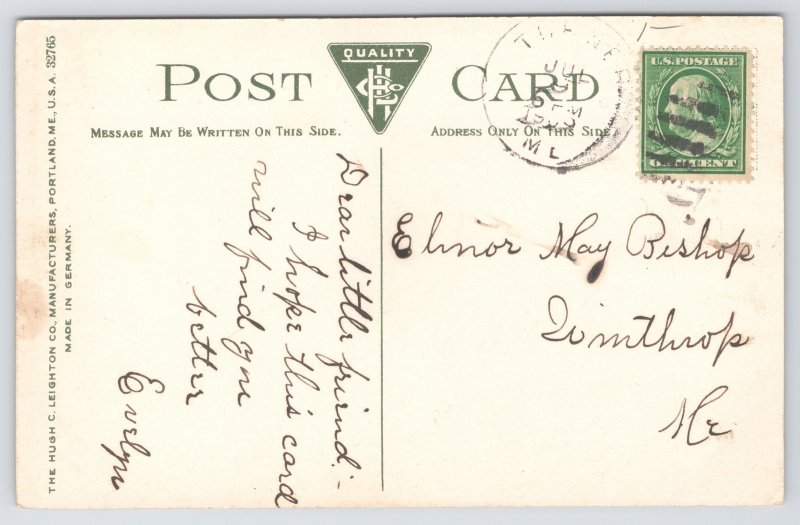 THE HUGH C. LEIGHTON CO., MANUFACTURERS, PORTLAND, ME., U.S.A. 32765
MADE IN GERMANY.
QUALITY
POST CARD
MESSAGE MAY BE WRITTEN ON THIS SIDE.
ADDRESS ONLY ON THIS SIDE.
Dear little friend:-
I hope this card
will find you
better
Evelyn
Elinor May Bishop
Winthrop
Me
TURNER
JUL
ME
U.S. POSTAGE
ONE CENT